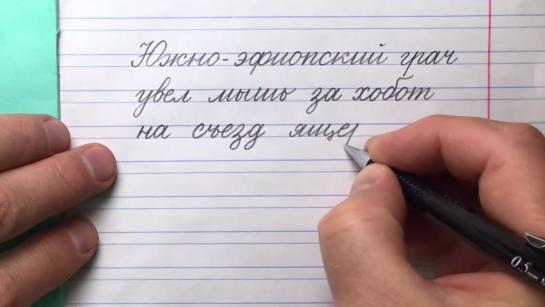 Южно-эфиопский грач
увел мышь за хобот
на съезд яще
0.5mm